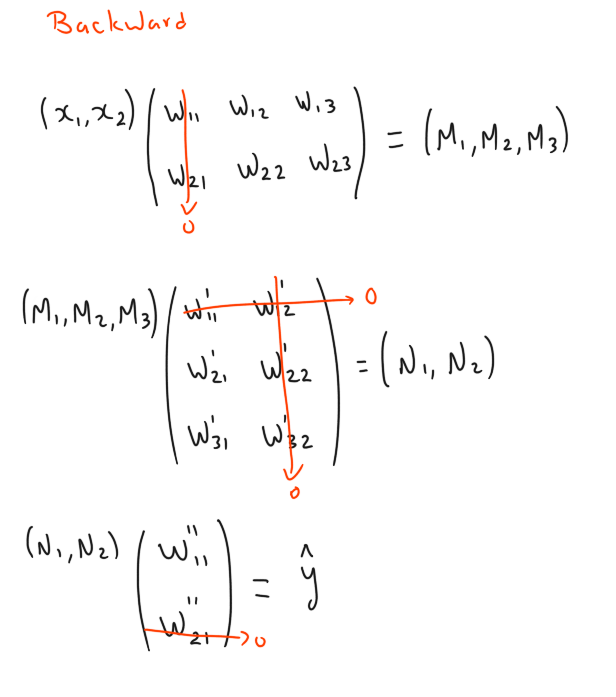 Backward
(x₁, x₂) ( W₁₁ W₁₂ W₁₃
W₂₁ W₂₂ W₂₃ ) = (M₁, M₂, M₃)
0
(M₁, M₂, M₃) ( W'₁₁ W'₁₂ → 0
W'₂₁ W'₂₂
W'₃₁ W'₃₂ ) = (N₁, N₂)
0
(N₁, N₂) ( W''₁₁
W''₂₁ ) = ŷ
→ 0